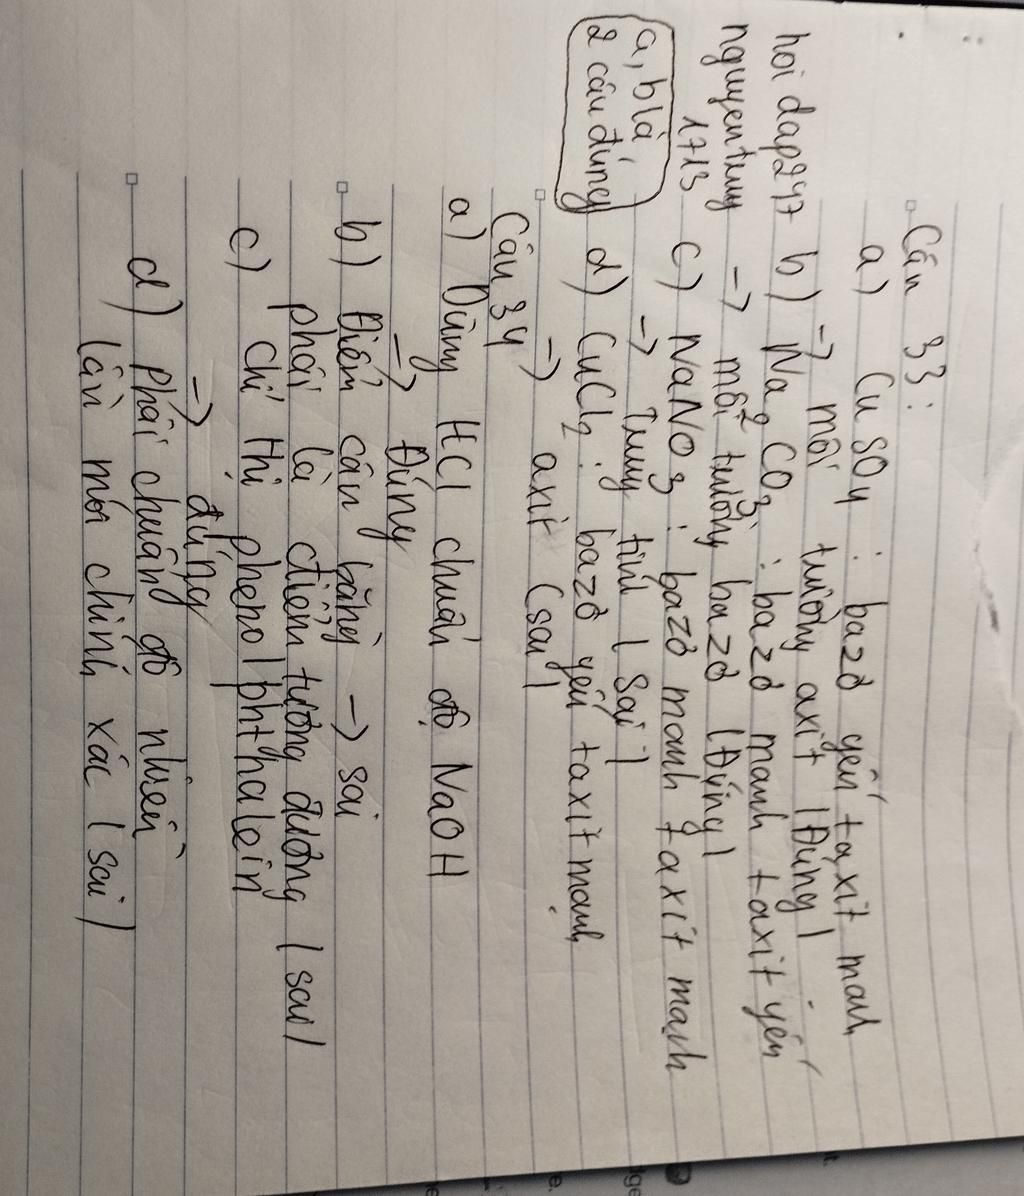 Câu 33:
a) CuSO4: bazơ yếu + axit mạnh
-> môi trường axit (Đúng)
hoidap247
b) Na2CO3: bazơ mạnh + axit yếu
nguyentuny
-> môi trường bazơ (Đúng)
1713
c) NaNO3: bazơ mạnh + axit mạnh
a, b là
-> Trung tính (sai)
2 câu đúng
d) CuCl2: bazơ yếu + axit mạnh
-> axit (sai)
Câu 34
a) Dùng HCl chuẩn độ NaOH
-> Đúng
b) Điểm cân bằng -> sai
phải là điểm tương đương (sai)
c) chỉ thị phenolphthalein
-> đúng
d) Phải chuẩn độ nhiều
lần mới chính xác (sai)